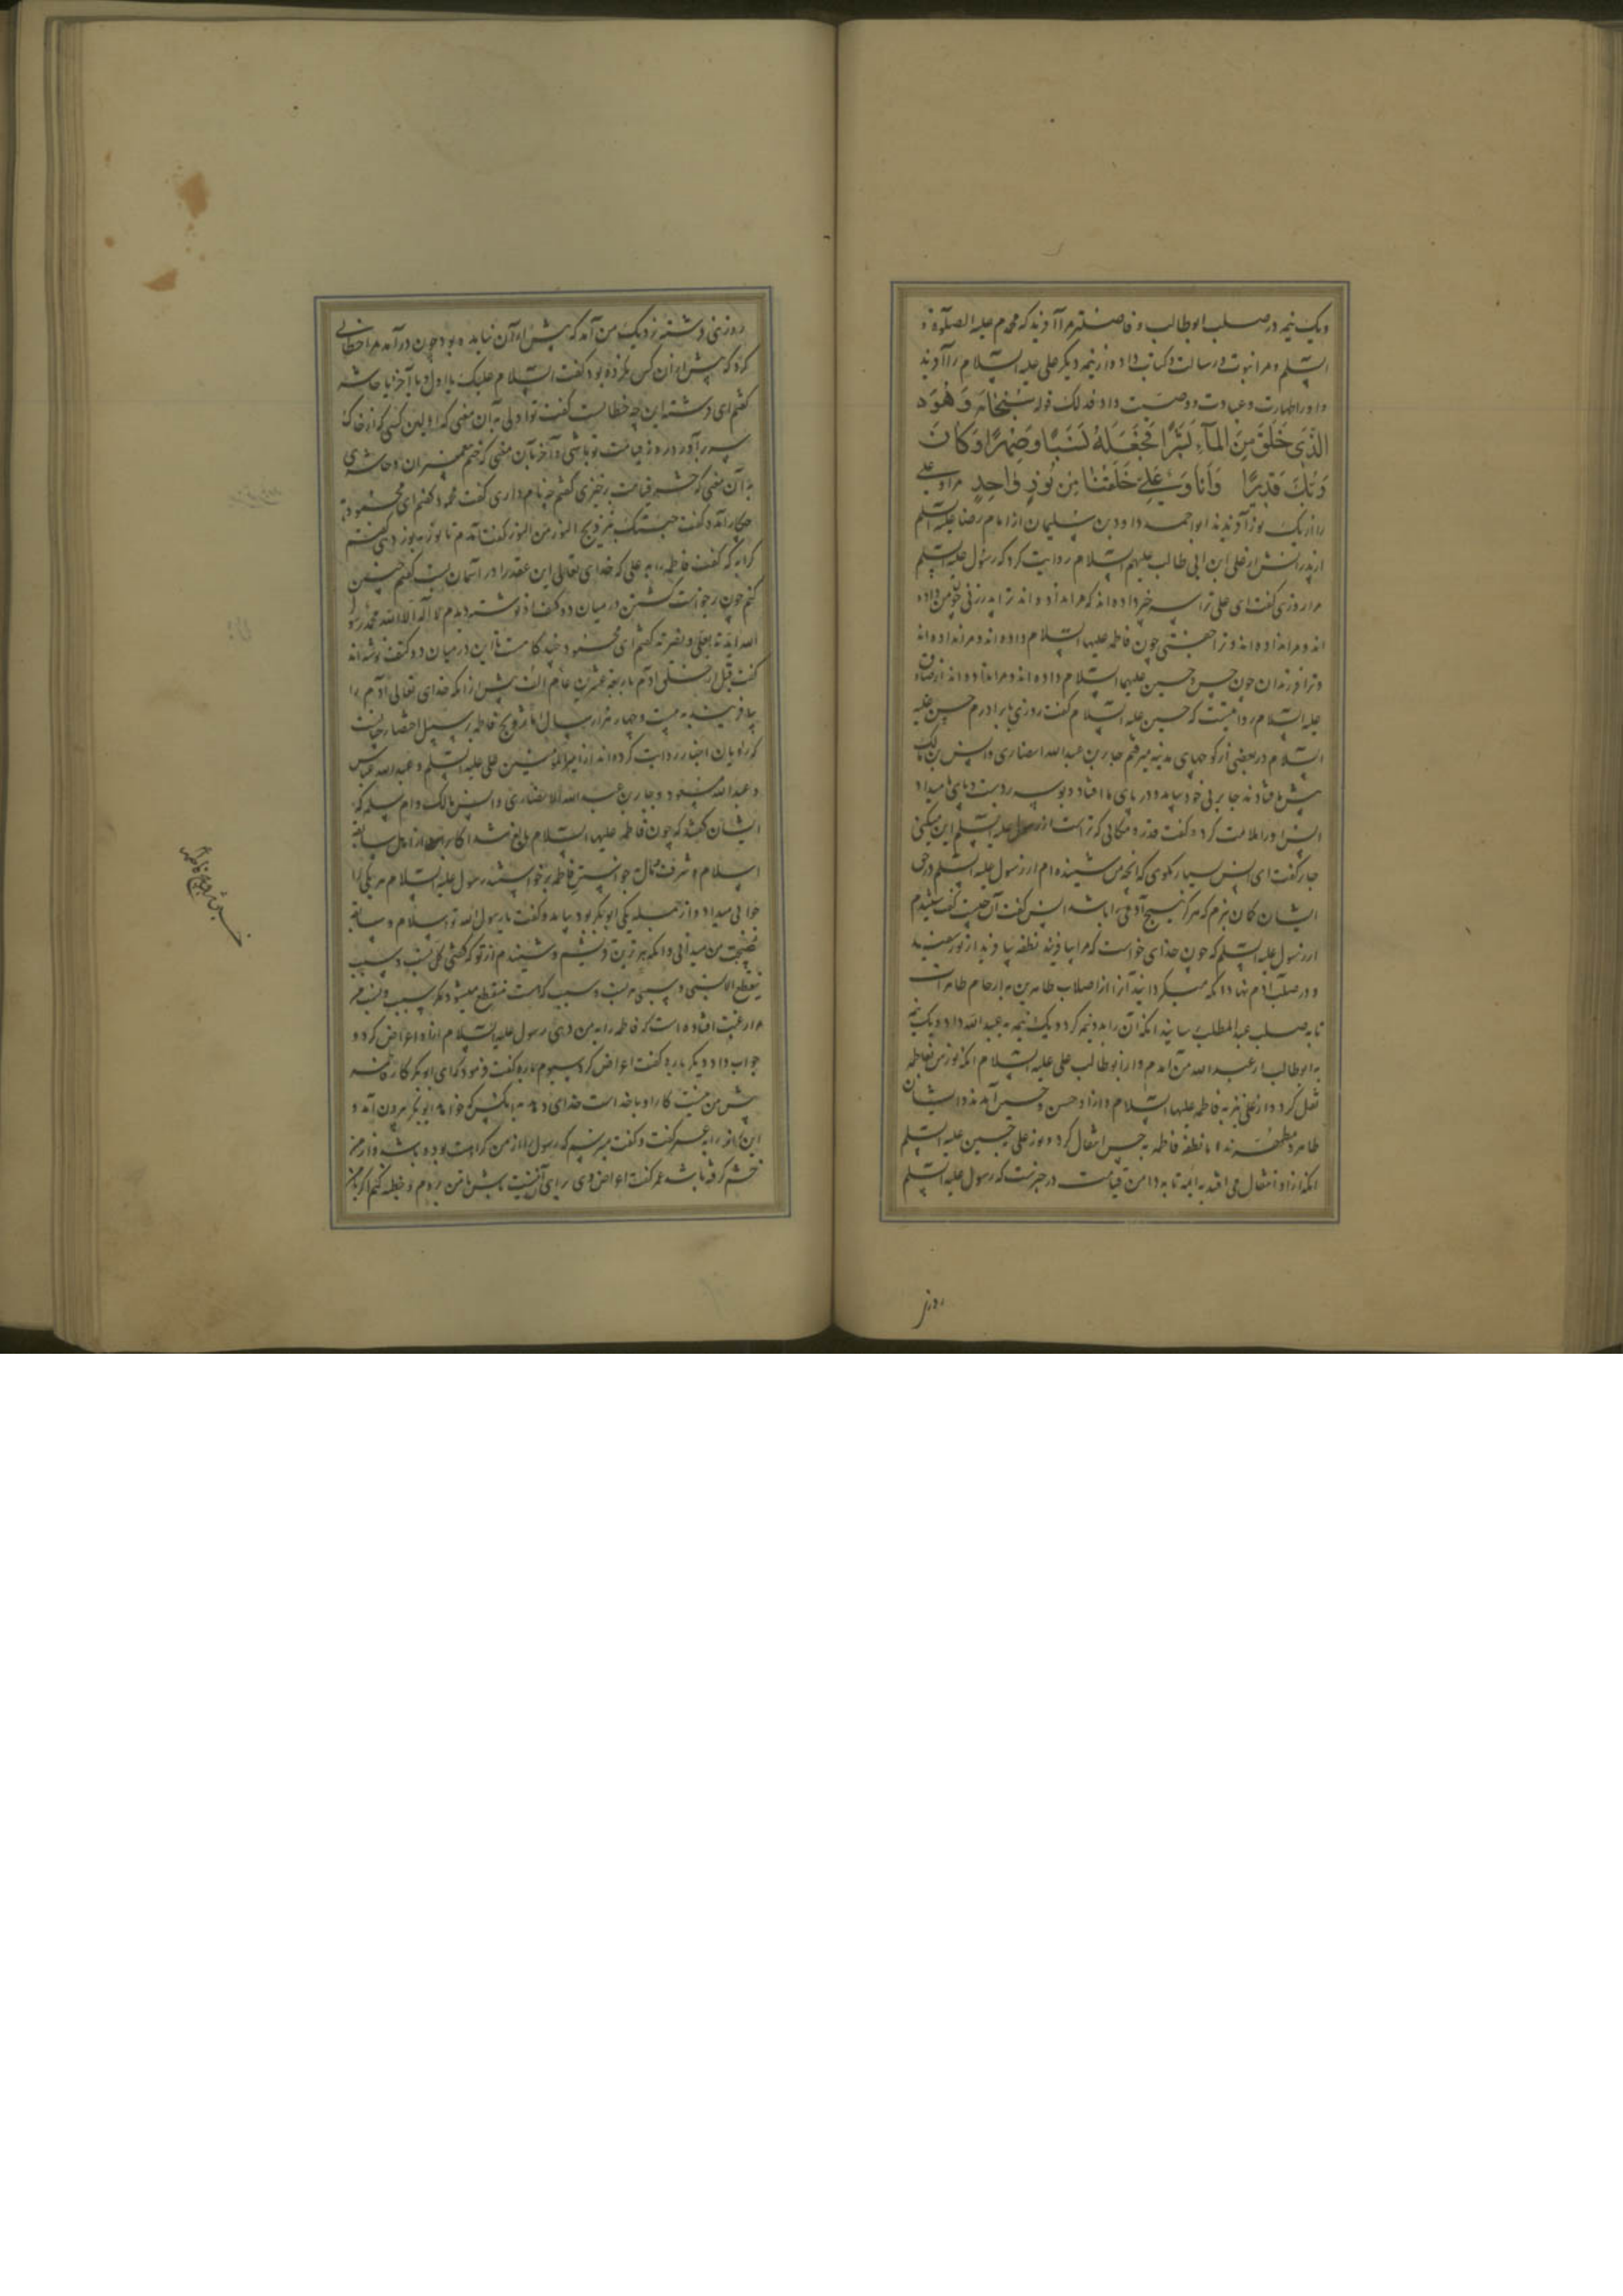 و یک نیمه در صلب ابوطالب و فاضلتر مرا آفرید که محمدم علیه الصلوة و
السلم و مرا نبوت و رسالت و کتاب داد و از نیمه دیکر علی علیه السلام را آفرید
و او را طهارت و عبادت و وصیت داد فذلک قوله سبحانه وَهُوَ
الَّذِی خَلَقَ مِنَ المَآءِ بَشَرًا فَجَعَلَهُ نَسَبًا وَصِهْرًا وَکَانَ
رَبُّکَ قَدِیرًا وَأَنَا وَعَلِیٌّ خَلَقَنَا مِن نُورٍ وَاحِدٍ مرا و علی
را از یک نور آفریدند ابو احمد داود بن سلیمان از امام رضا علیه السلم
از پدرانش از علی ابن ابی طالب علیهم السلام روایت کرد که رسول علیه السلم
مرا روزی کفت ای علی ترا سه چیز داده اند که مرا نداده اند ترا پدر زنی چون من داده
اند و مرا نداده اند و ترا جفتی چون فاطمه علیها السلام داده اند و مرا نداده اند
و ترا فرزندان چون حسن و حسین علیهما السلام داده اند و مرا نداده اند از صادق
علیه السلام روایتست که حسین علیه السلام کفت روزی با برادرم حسن علیه
السلام در بعضی از کوچهای مدینه میرفتم جابر بن عبدالله انصاری و انس بن مالک
پیش ما افتادند جابر بی خود بیامد و در پای ما افتاد و بوسه بر دست و پای ما میداد
انس او را ملامت کرد و کفت قدر و مکانی که تراست از رسول علیه السلم این میکنی
جابر کفت ای انس بسیار مکوی که انچه من شنیده ام از رسول علیه السلم در حق
ایشان کمان نبرم که هرکز هیچ آدمی را باشد انس کفت آن چیست کفت شنیدم
از رسول علیه السلم که چون خدای خواست که مرا بیافریند نطفه بیافرید از نور سفید
و در صلب آدم نهاد انکه میکردانید آنرا از اصلاب طاهرین به ارحام طاهرات
تا به صلب عبدالمطلب رسانید انکه آن را به دو نیمه کرد و یک نیمه به عبدالله داد و یک نیمه
به ابوطالب از عبدالله من آمدم و از ابوطالب علی علیه السلام انکه نور من بفاطمه
نقل کرد و از علی نیز به فاطمه علیها السلام و از او حسن و حسین آمدند و ایشان
طاهر و مطهرند اما نطفه فاطمه به حسن انتقال کرد و نور علی به حسین علیه السلم
انکه از او انتقال می افتد به ائمه تا به دامن قیامت در خبرست که رسول علیه السلم
روز
روزی فرشته نزدیک من آمد که پیش از آن نیامده بود چون درآمد مرا خطابی
کرد که پیش از آن کس نکرده بود کفت السلام علیک یا اول و یا آخر یا حاشر
کفتم ای فرشته این چه خطابست کفت تو اولی به آن معنی که اولین کسی که از خاک
سر برآورد روز قیامت تو باشی و آخر بآن معنی که ختم پیغمبران و حاشری
به آن معنی که حشر قیامت برخیزی کفتم چه نام داری کفت محمود کفتم ای محمود به
چکار آمده کفت جئتک بتزویج النور من النور کفت آمدم تا نور به نور دهی کفتم
کرا به که کفت فاطمه را به علی که خدای تعالی این عقد را در آسمان بست کفتم چنین
کنم چون برخواست کشتن در میان دو کتف او نوشته دیدم لا اله الا الله محمد رسول
الله ایدته بعلی و نصرته کفتم ای محمود چند کاهست تا این در میان دو کتف تو نوشته اند
کفت قبل از خلق آدم باربعه عشرین عام الف پیش از آنکه خدای تعالی آدم را
بیافرید به بیست و چهار هزار سال اما تزویج فاطمه بر سبیل اختصار چنانست
که راویان اخبار روایت کرده اند از امیر المؤمنین علی علیه السلم و عبدالله عباس
و عبدالله مسعود و جابر بن عبدالله الانصاری و انس مالک و ام سلمه که
ایشان کفتند که چون فاطمه علیها السلام بالغ شد اکابر از اهل سابقه
اسلام و شرف و مال خواستن فاطمه برخواستند رسول علیه السلام هر یکی را
جوابی میداد و از جمله یکی ابوبکر بود بیامد و کفت یا رسول الله تو اسلام و سابقه
نصیحت من میدانی و انکه بهترین قریشم و شنیدم از تو که کفتی کل نسب و سبب
ینقطع الا نسبی و سببی هر نسب و سبب که هست منقطع میشود مکر سبب و نسب من
مرا رغبت افتاده است که فاطمه را به من دهی رسول علیه السلام از او اعراض کرد و
جواب داد دیکر باره کفت اعراض کرد سیوم باره کفت فرمود که ای ابوبکر کار فاطمه
پیش من نیست کار او با خداست خدای دهد به آنکس که خواهد ابوبکر بیرون آمد و
این ماجرا به عمر کفت و کفت میترسم که رسول را از من کراهت بوده باشد و از من
خشم کرفته باشد عمر کفت اعراض وی برای آن نیست باش تا من بروم و خطبه کنم اکر با من